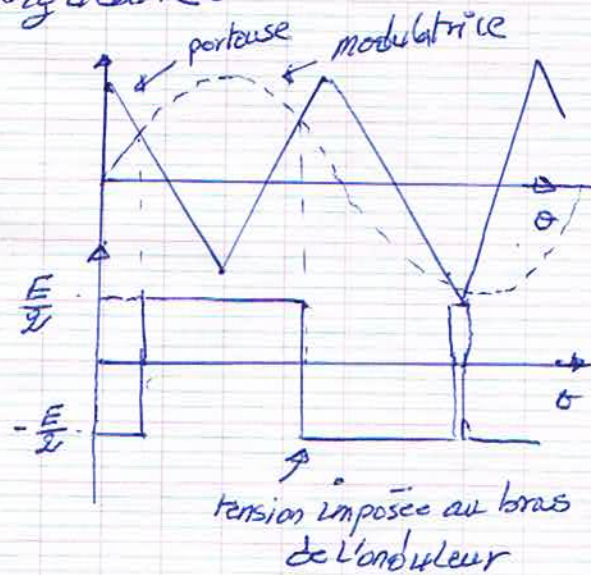 porteuse
modulatrice
θ
E/2
-E/2
θ
tension imposée au bras
de l'onduleur